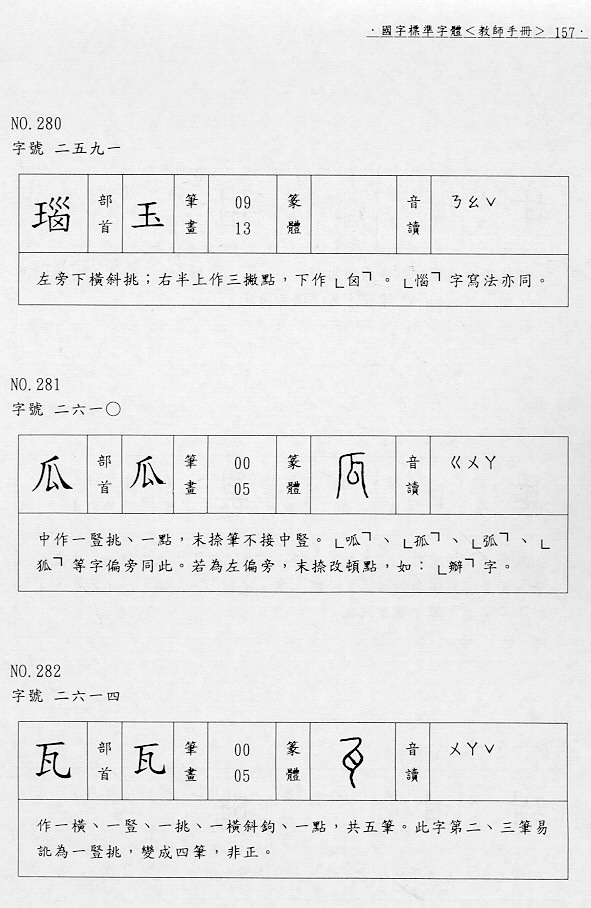 ·國字標準字體＜教師手冊＞ 157·
NO.280
字號 二五九一
瑙 部首 玉 筆畫 09 13 篆體 音讀 ㄋㄠˇ
左旁下橫斜挑；右半上作三撇點，下作「囟」。「惱」字寫法亦同。
NO.281
字號 二六一○
瓜 部首 瓜 筆畫 00 05 篆體 音讀 ㄍㄨㄚ
中作一豎挑、一點，末捺筆不接中豎。「呱」、「孤」、「弧」、「
狐」等字偏旁同此。若為左偏旁，末捺改頓點，如：「瓣」字。
NO.282
字號 二六一四
瓦 部首 瓦 筆畫 00 05 篆體 音讀 ㄨㄚˇ
作一橫、一豎、一挑、一橫斜鉤、一點，共五筆。此字第二、三筆易
訛為一豎挑，變成四筆，非正。